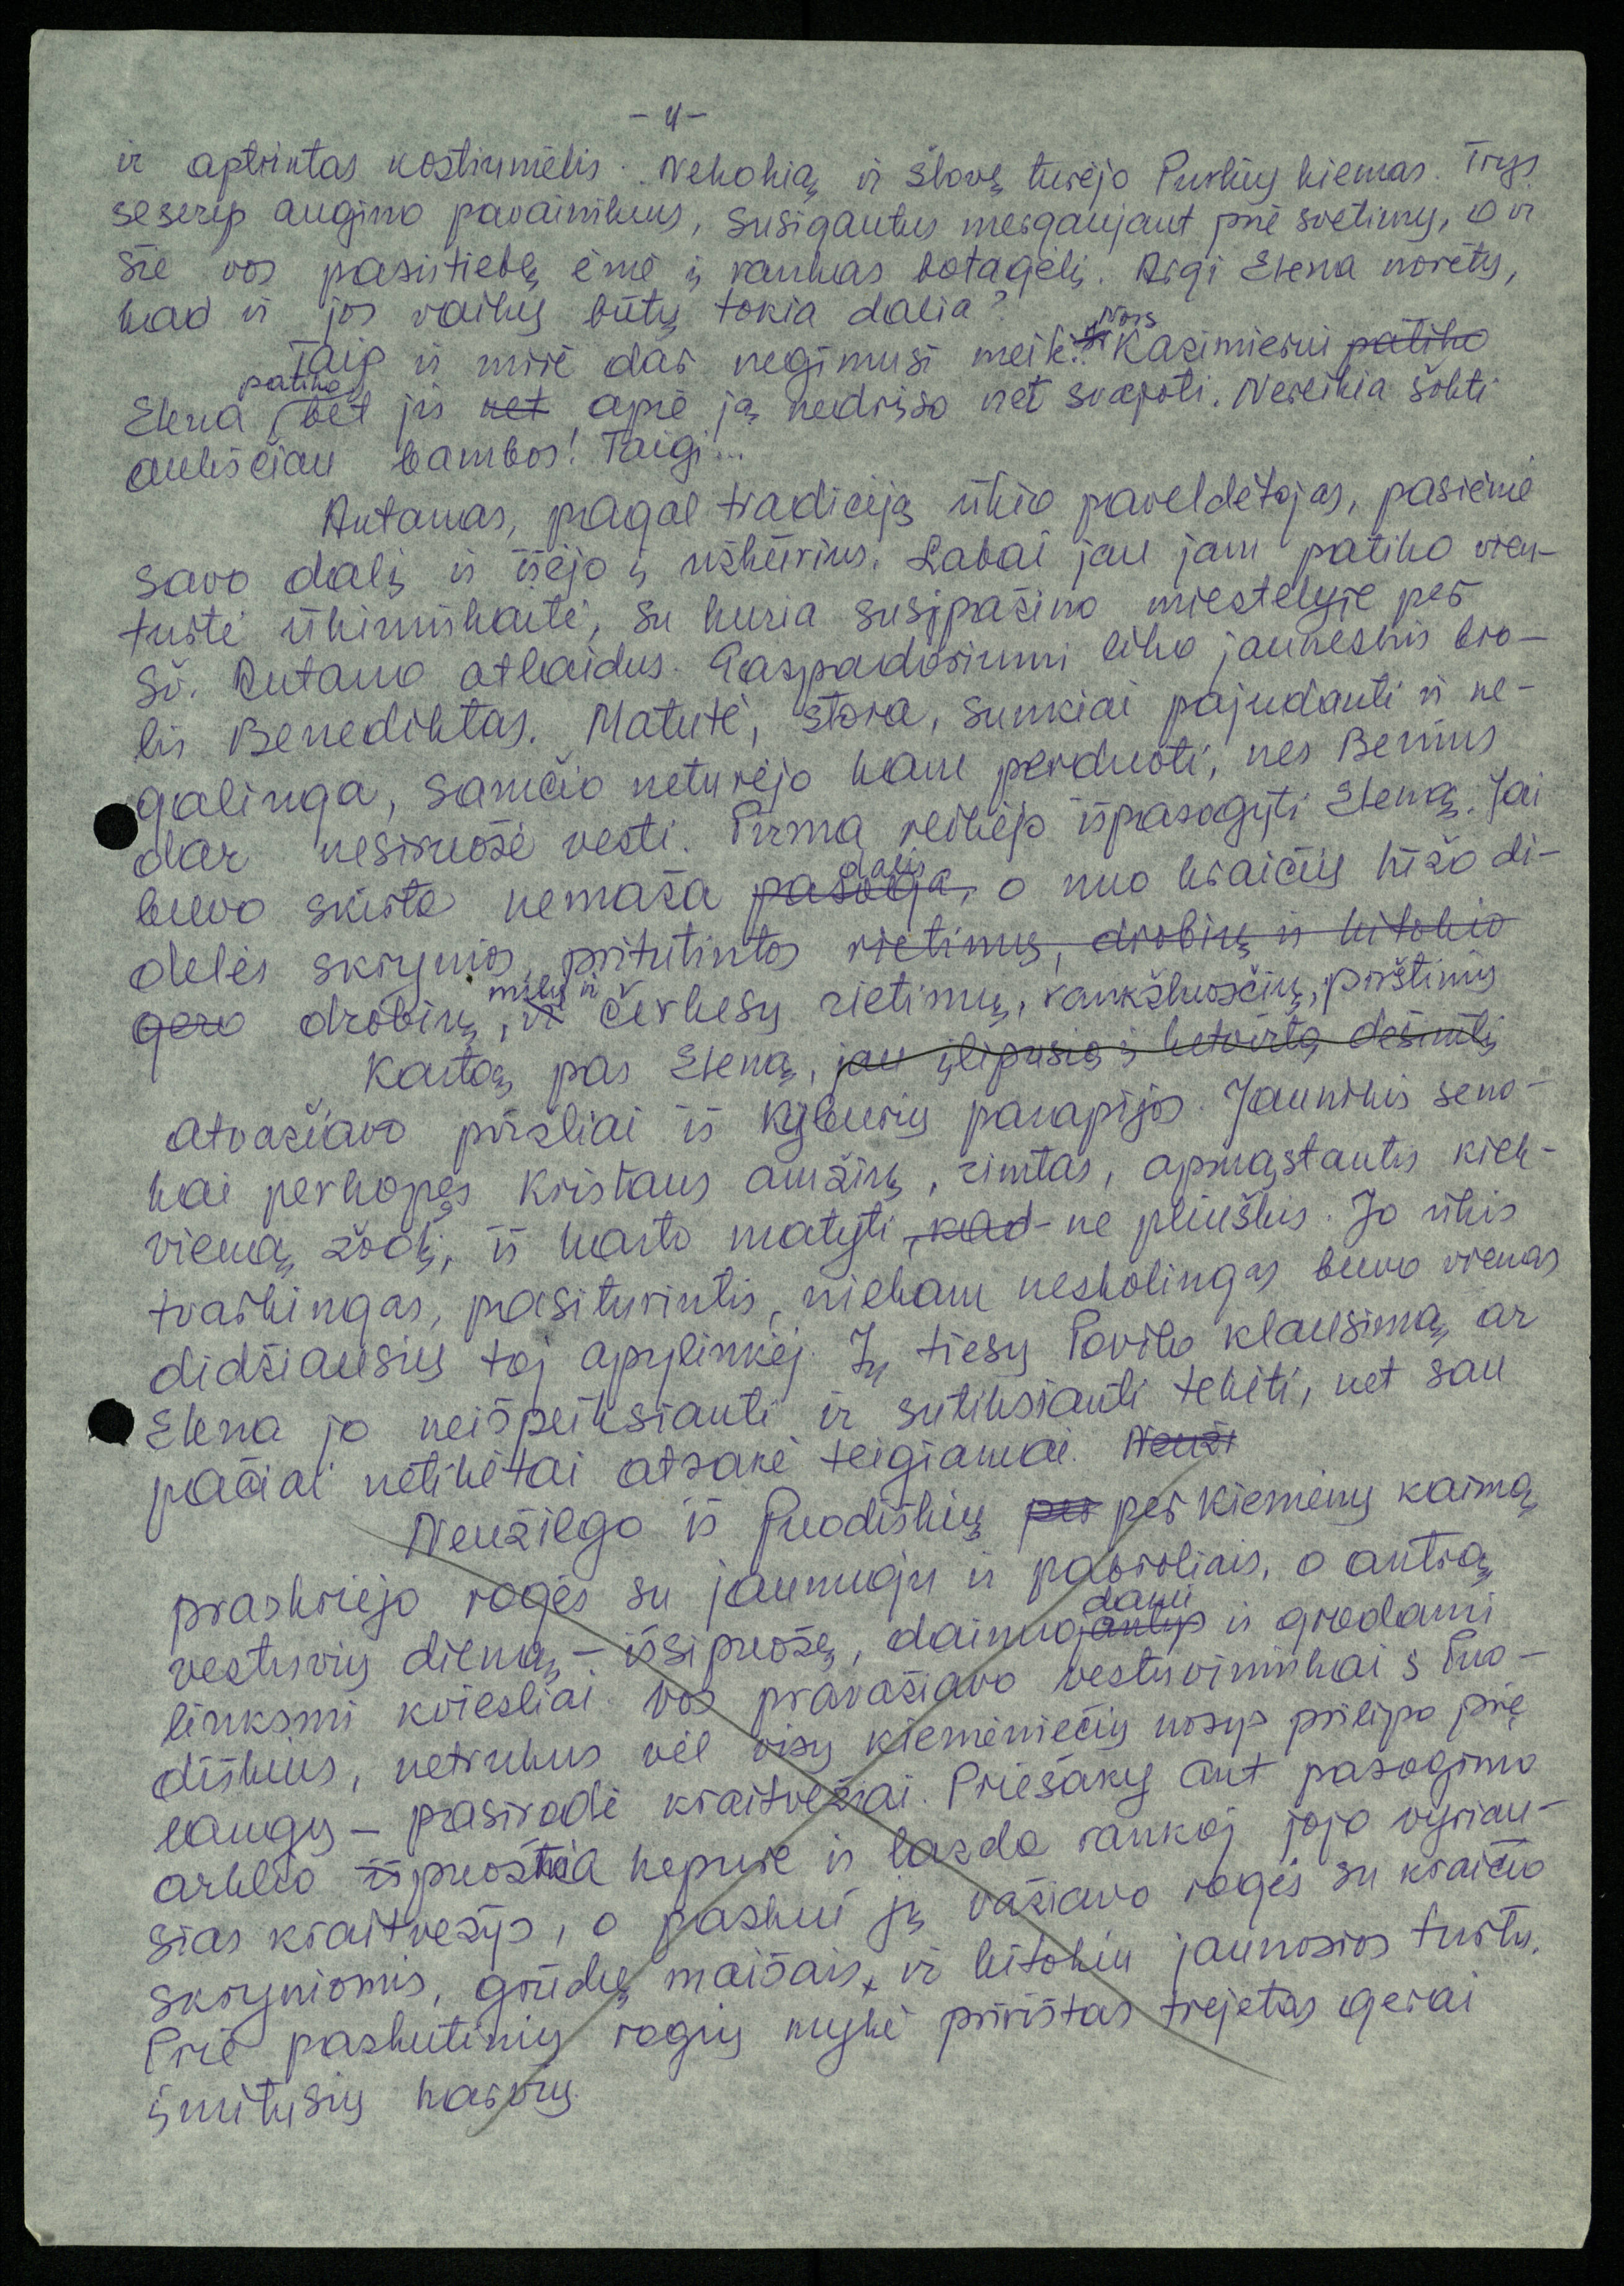 - 4 -
ir aptrintas kostiumėlis. Nekokią ir šlovę turėjo Purkių kiemas. Trys
seserys augino pavainikus, susigautus mergaujant prie svetimų, o ir
šie vos pasistiebę ėmė į rankas botagėlį. Argi Elena norėtų,
kad ir jos vaikų būtų tokia dalia?
Taip ir mirė dar negimusi meilė. Nors Kazimierui patiko
Elena patiko, bet jis net apie ją nedrįso net svajoti. Nereikia šokti
aukščiau bambos! Taigi...
Antanas, pagal tradiciją ūkio paveldėtojas, pasiėmė
savo dalį ir išėjo į užkurius. Labai jau jam patiko vien-
turtė ūkininkaitė, su kuria susipažino miestelyje per
Šv. Antano atlaidus. Gaspadoriumi liko jaunesnis bro-
lis Benediktas. Matutė, stora, sunkiai pajudanti ir ne-
galinga, samčio neturėjo kam perduoti, nes Benius
dar nesiruošė vesti. Pirma reikėjo išpasogyti Eleną. Jai
buvo skirta nemaža pasoga, dalis o nuo kraičių lūžo di-
delės skrynios, pritutintos rietimų, drobių ir kitokio
gero drobių, milų ir čerkesų rietimų, rankšluosčių, pirštinių
Kartą pas Eleną, jau įlipusią į ketvirtą dešimtį
atvažiavo piršliai iš Kyburių parapijos. Jaunikis seno-
kai perkopęs Kristaus amžių, rimtas, apmąstantis kiek-
vieną žodį, iš karto matyti, kad ne pliuškis. Jo ūkis
tvarkingas, pasiturintis, niekam neskolingas buvo vienas
didžiausių toj apylinkėj. Į tiesų Povilo klausimą, ar
Elena jo neišpeiksianti ir sutiksianti tekėti, net sau
pačiai netikėtai atsakė teigiamai. Neuži
Neužilgo iš Puodiškių per per Kiemėnų kaimą
praskriejo rogės su jaunuoju ir pabroliais, o antrą
vestuvių dieną – išsipuošę, dainuojantys dami ir grodami
linksmi kviesliai. Vos pravažiavo vestuvininkai į Puo-
diškius, netrukus vėl visų kiemėniečių nosys prilipo prie
langų – pasirodė kraitvežiai. Priešaky ant pasogimo
arklio išpuošta kepure ir lazda rankoj jojo vyriau-
sias kraitvežys, o paskui jį važiavo rogės su kraičio
skryniomis, grūdų maišais, ir kitokiu jaunosios turtu.
Prie paskutinių rogių mykė pririštas trejetas gerai
įmitusių karvių.